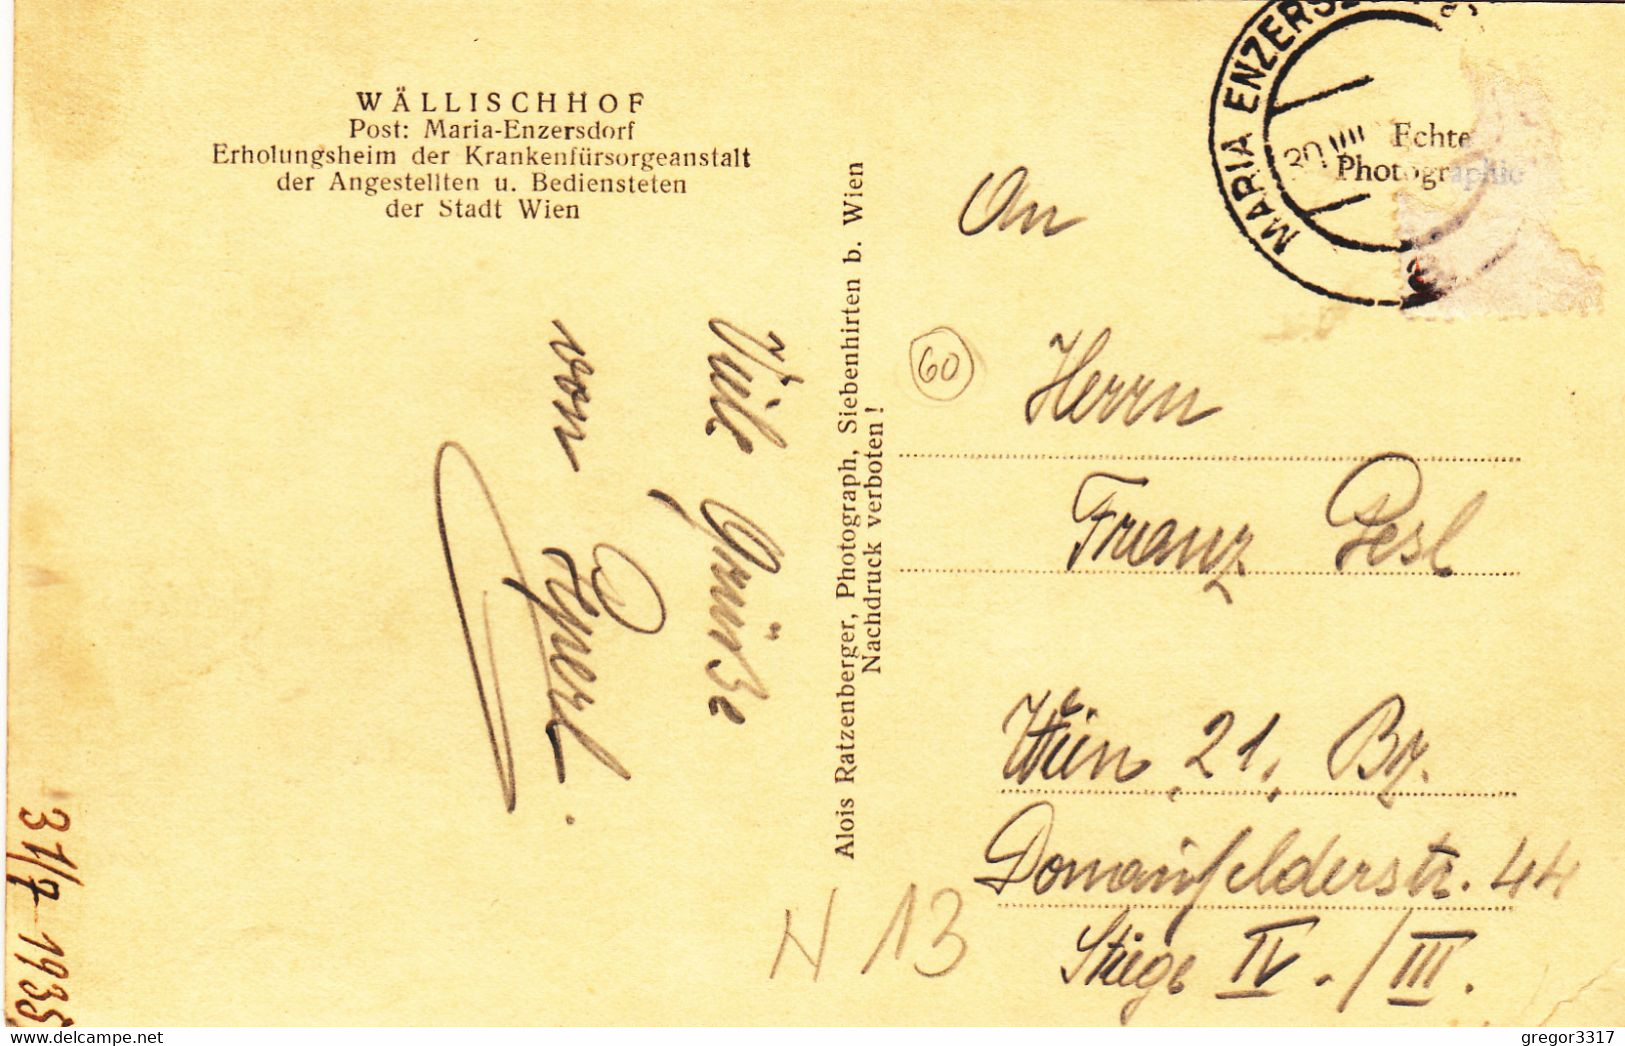 WÄLLISCHHOF
Post: Maria-Enzersdorf
Erholungsheim der Krankenfürsorgeanstalt
der Angestellten u. Bediensteten
der Stadt Wien
Viele Grüße
von
31/7 1935
Alois Ratzenberger, Photograph, Siebenhirten b. Wien
Nachdruck verboten!
MARIA ENZERS
30 VII
Echte
Photographie
An
60
Herrn
Franz Pesl
Wien 21, Bz.
Donaufelderstr. 44
Stiege IV./III.
N 13
gregor3317